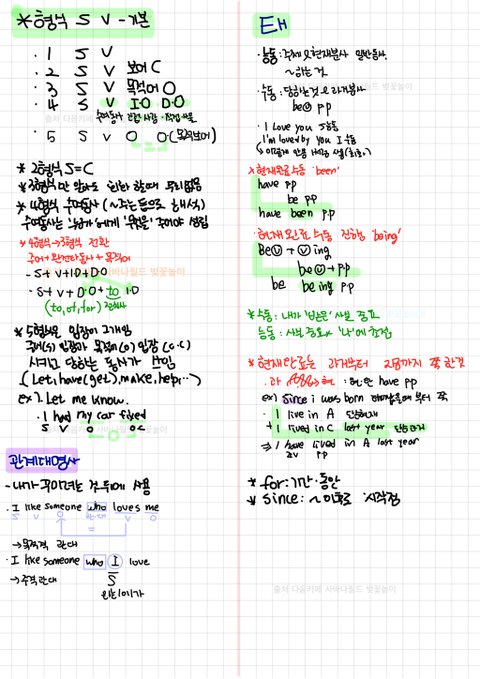 *형식 S V - 기본
· 1 S V
· 2 S V 보어 C
· 3 S V 목적어 O
· 4 S V I·O D·O
수여동사 간접-사람 · 직접-사물
· 5 S V O O·C (목적보어)
* 2형식 S=C
* 4형식 수여동사 (~주는 등으로 해석)
수여동사는 '누군가에게' '무엇을' 주어야 성립
* 4형식→3형식 전환
주어+완전타동사+목적어
- S+V+I·O+D·O
- S+V+D·O+to I·O
(to, of, for) 전치사
* 5형식은 입장이 2개임
주어(S) 입장과 목적어(O) 입장 (O.C)
시키고 당하는 동사가 쓰임
(Let, have(get), make, help, ...)
ex) Let me know.
· I had my car fixed
S V O OC
관계대명사
- 내가 꾸미려는 것 뒤에 사용
· I like someone who loves me
S V O 관대 V O
=
→ 목적격 관대
· I like someone who I love
→ 주격관대 S
은는이가
태
· 능동 : 주체 O 현재분사 일반동사.
~하는 것
· 수동 : 당하는것 O 과거분사
be v pp
· I love you 능동
I'm loved by you 수동
*현재완료수동 'been'
have pp
be pp
have been pp
· 현재완료 수동 진행 'being'
Be v + v ing
be v + pp
be being pp
*수동 : 내가 '받은' 사실 중요
능동 : 사실 중요x '나'에 초점
*현재완료는 과거부터 지금까지 쭉 한것
· 과 현 : 현완 have pp
ex) since i was born 태어났을때부터 쭉
· I live in A 단순현재
+ I lived in C last year 단순과거
→ I have lived in A last year
*for : 기간·동안
*since : ~이후로 시작점
출처 다음카페 사바나월드 벚꽃놀이